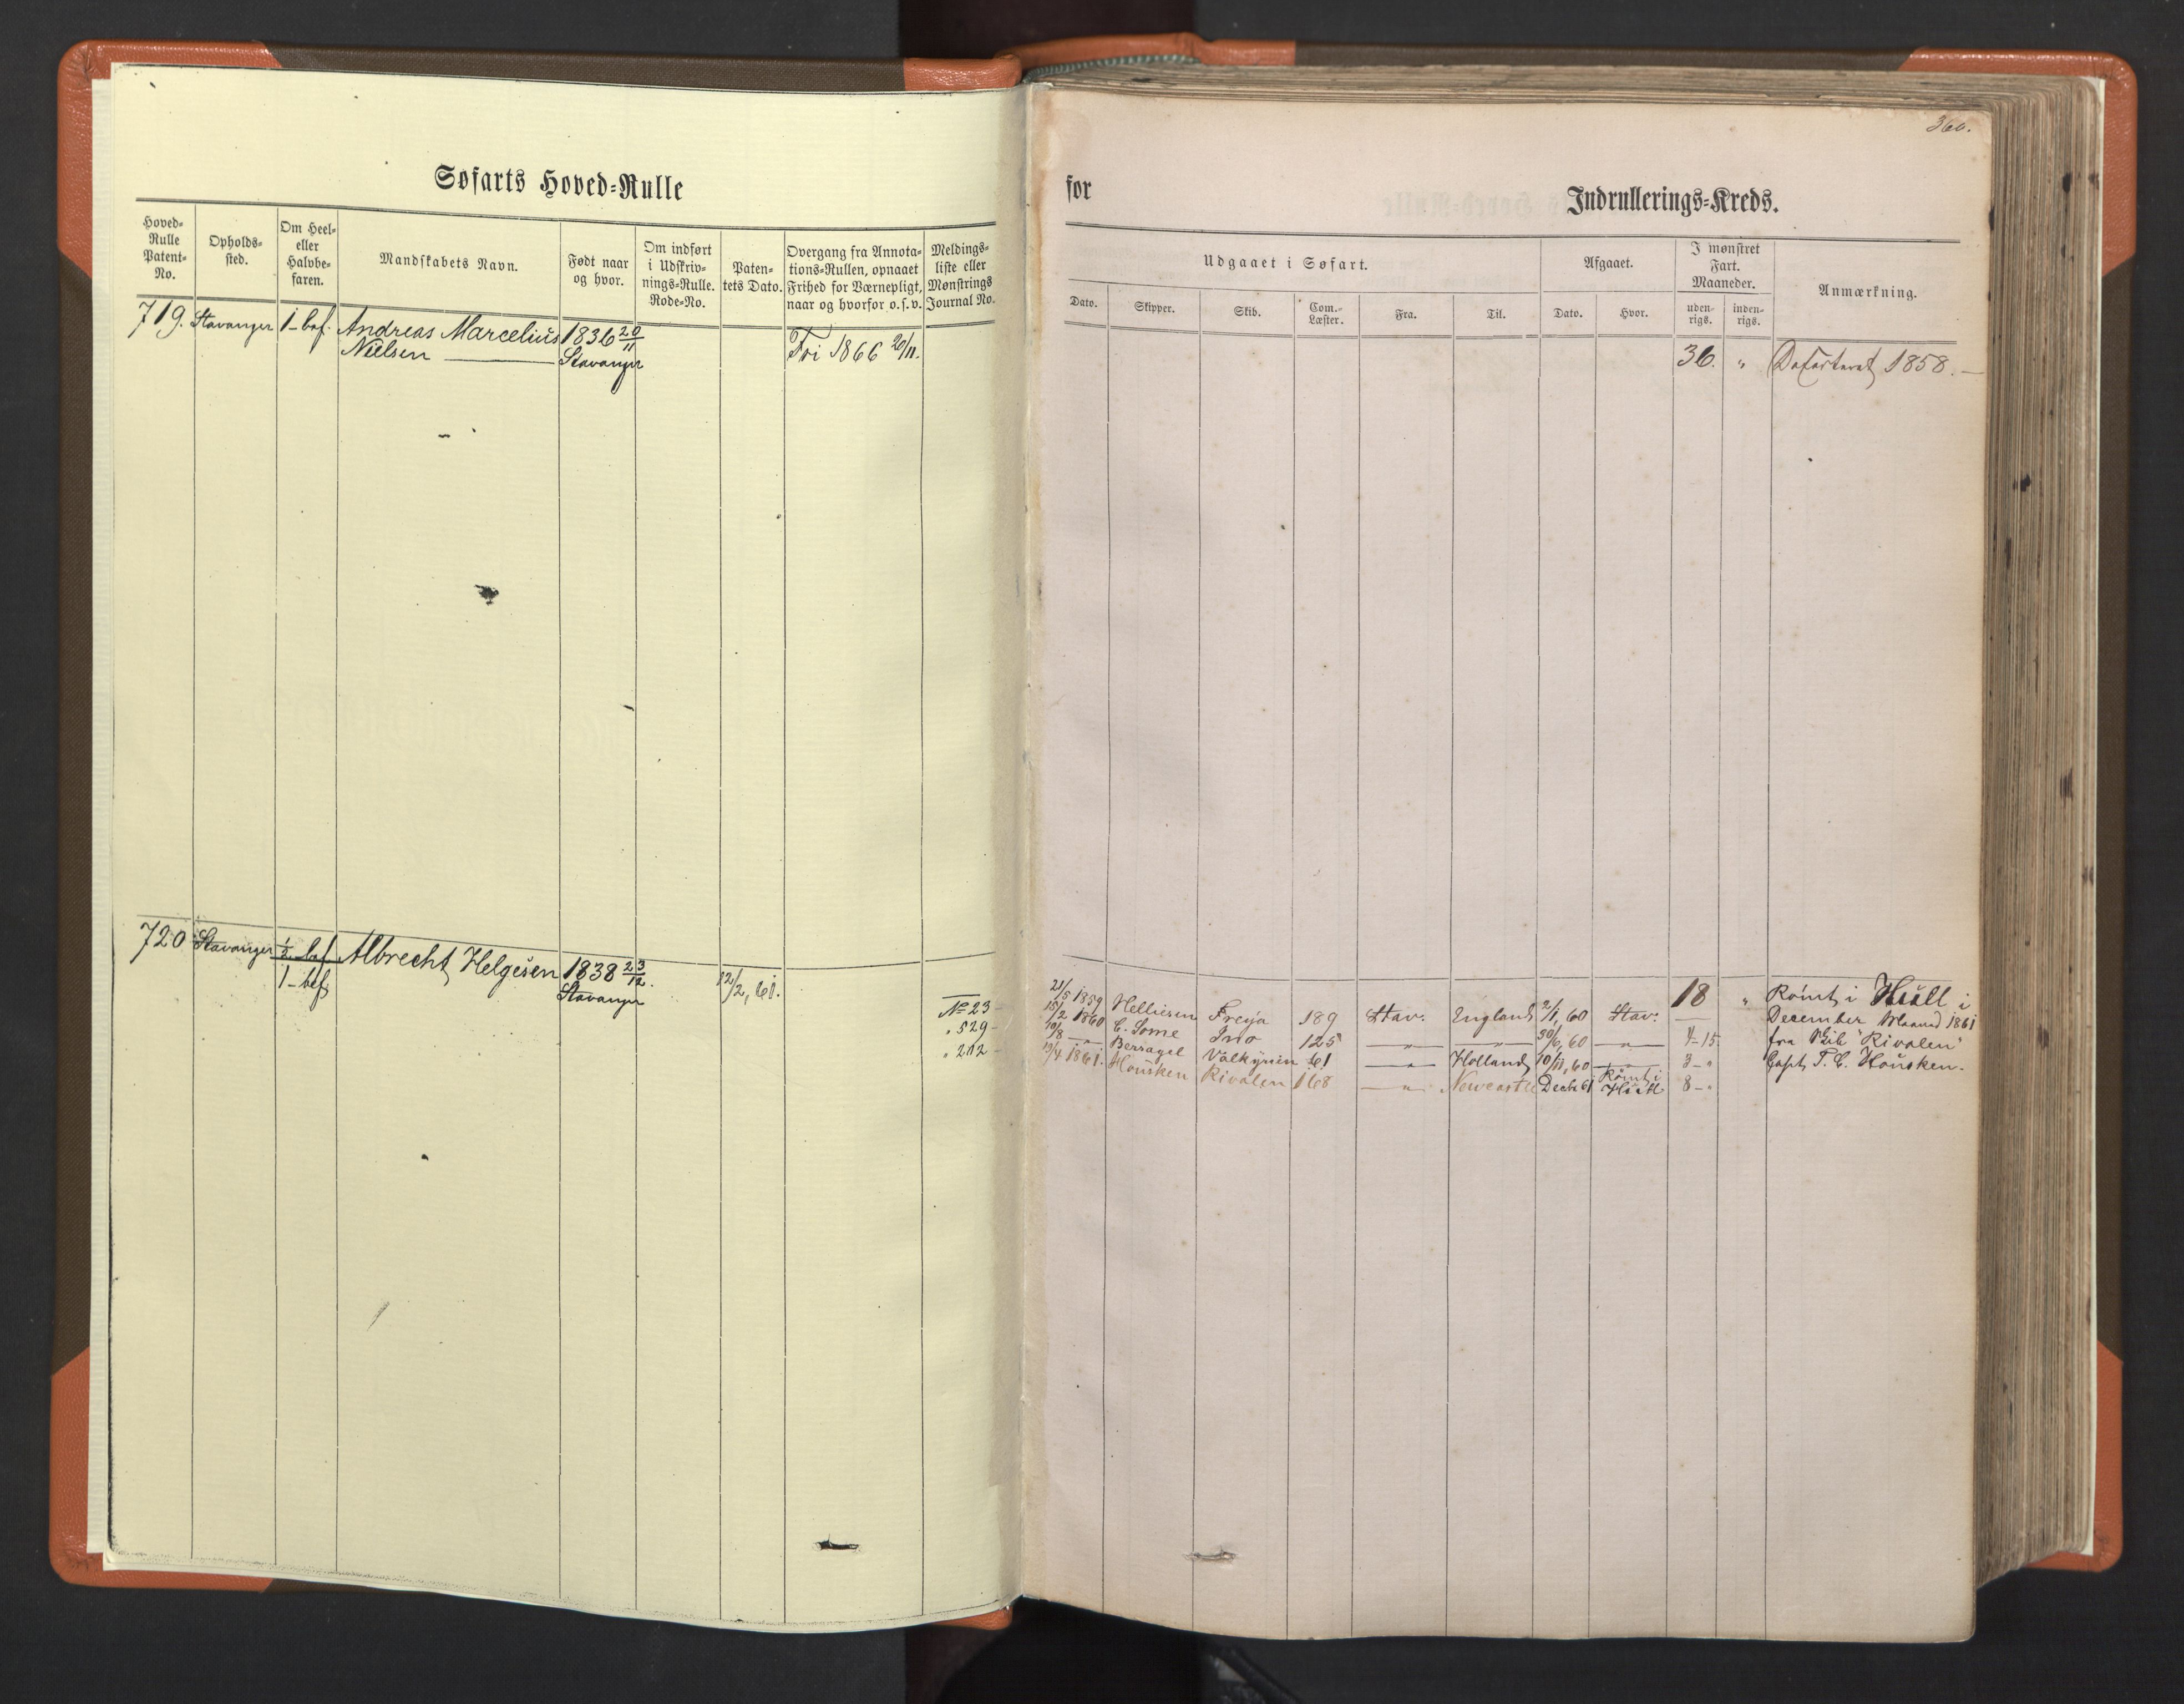 Søfarts Hoved=Rulle
Hoved=
Rulle
Patent=
No.
Opholds=
sted.
Om Heel=
eller
Halvbe=
faren.
Mandskabets Navn.
Født naar
og hvor.
Om indført
i Udskriv=
nings=Rulle.
Rode=No.
Paten=
tets Dato.
Overgang fra Annota=
tions=Rullen, opnaaet
Frihed for Værnepligt,
naar og hvorfor o.s.v.
Meldings=
liste eller
Mønstrings
Journal No.
719. Stavanger 1-bef. Andreas Marcelius 1836 20/11
Nielsen Stavanger Fri 1866 20/11.
720 Stavanger 1/2 bef. Albrecht Helgesen 1838 23/12.
1-bef. Stavanger 12/2, 61.
No 23-
" 529-
" 212-
360.
for Indrullerings=Kreds.
Udgaaet i Søfart.
Afgaaet.
I mønstret
Fart.
Maaneder.
Anmærkning.
Dato.
Skipper.
Skib.
Com.=
Læster.
Fra.
Til.
Dato.
Hvor.
uden=
rigs.
inden=
rigs.
36. " 1858.
18 " Römt i Hull i
21/5 1859 Helliesen Freya 189 Stav: England 2/1, 60 Stav: — December Maaned 1861
15/2 1860 C. Some Ino 125 — " — — " — 30/6, 60 — " — 4-15 fra Skib "Rivalen"
10/8 — " — Bersagel Valkyrien 61 — " — Holland 10/11, 60 — " — 3-" Capt. T. C. Housken.
19/4 1861. Housken Rivalen 168 — " — Newcastle Decbr 61 Römt i Hull 8-"